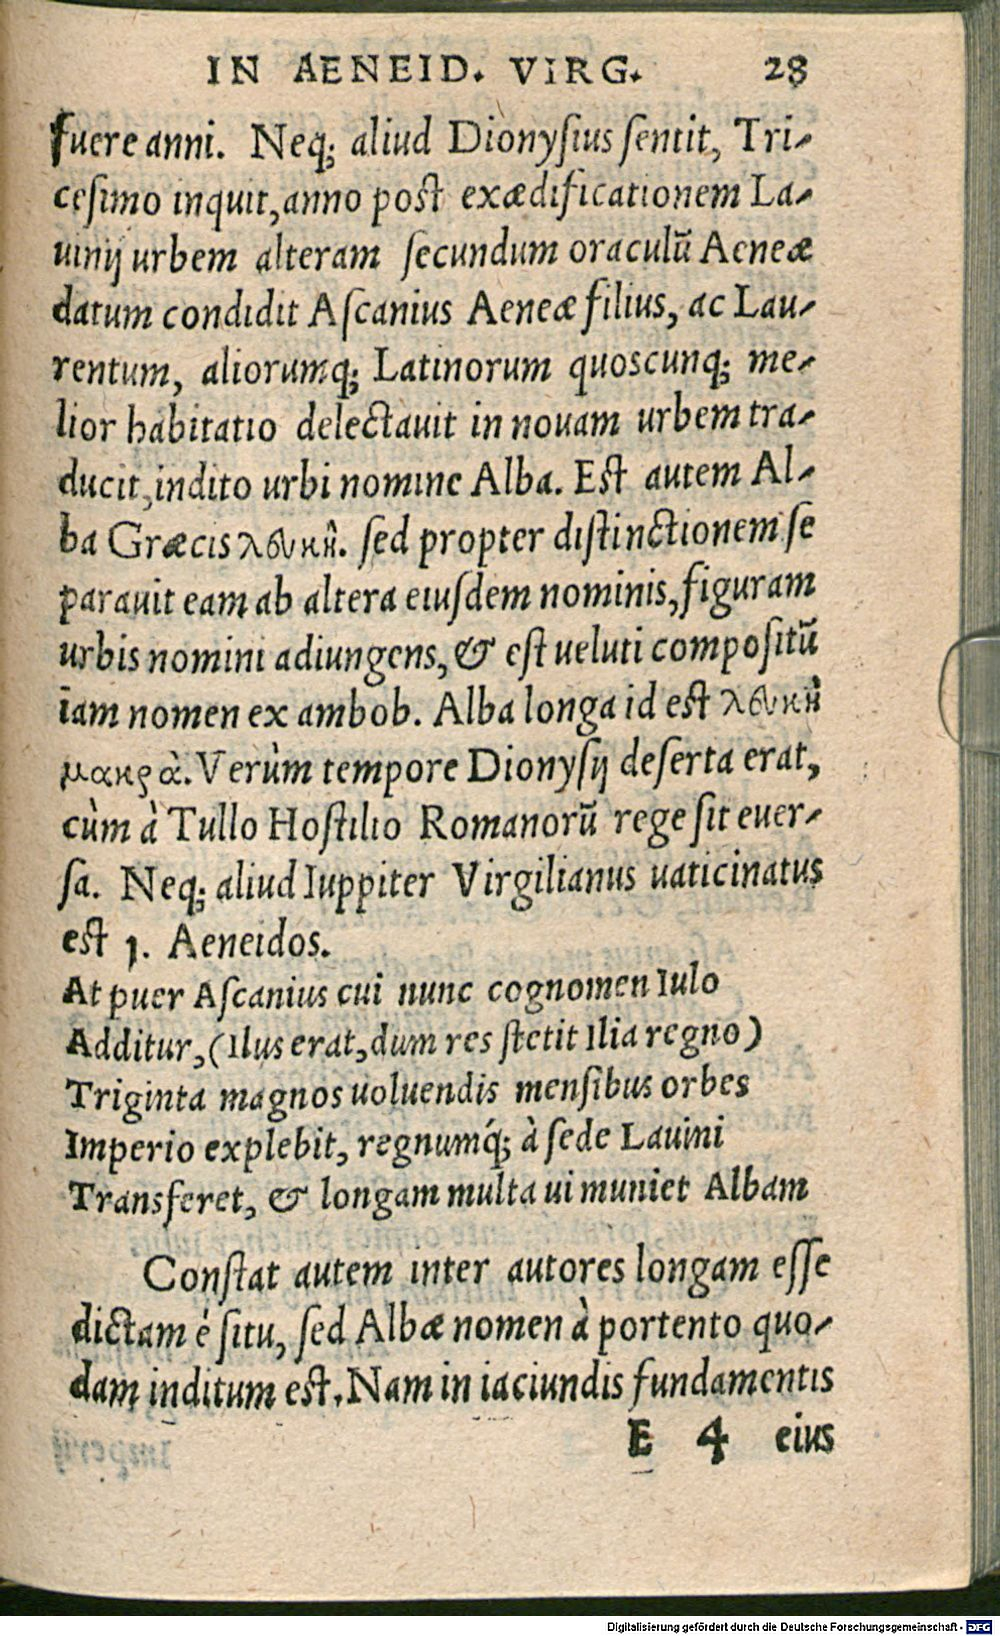 IN AENEID. VIRG. 28
fuere anni. Neq; aliud Dionyſius ſentit, Tri-
ceſimo inquit, anno poſt exædificationem La-
uinij urbem alteram ſecundum oraculũ Aeneæ
datum condidit Aſcanius Aeneæ filius, ac Lau-
rentum, aliorumq; Latinorum quoscunq; me-
lior habitatio delectauit in nouam urbem tra-
ducit, indito urbi nomine Alba. Eſt autem Al-
ba Græcis λευκὴ. ſed propter diſtinctionem ſe
parauit eam ab altera eiuſdem nominis, figuram
urbis nomini adiungens, & eſt ueluti compoſitũ
iam nomen ex ambob. Alba longa id eſt λευκὴ
μακρὰ. Verùm tempore Dionyſij deſerta erat,
cùm à Tullo Hoſtilio Romanorũ rege ſit euer-
ſa. Neq; aliud Iuppiter Virgilianus uaticinatus
eſt 1. Aeneidos.
At puer Aſcanius cui nunc cognomen Iulo
Additur, (Ilus erat, dum res ſtetit Ilia regno)
Triginta magnos uoluendis menſibus orbes
Imperio explebit, regnumq́; à ſede Lauini
Transferet, & longam multa ui muniet Albam
Conſtat autem inter autores longam eſſe
dictam é ſitu, ſed Albæ nomen à portento quo-
dam inditum eſt. Nam in iaciundis fundamentis
E 4 eius
Digitalisierung gefördert durch die Deutsche Forschungsgemeinschaft - DFG